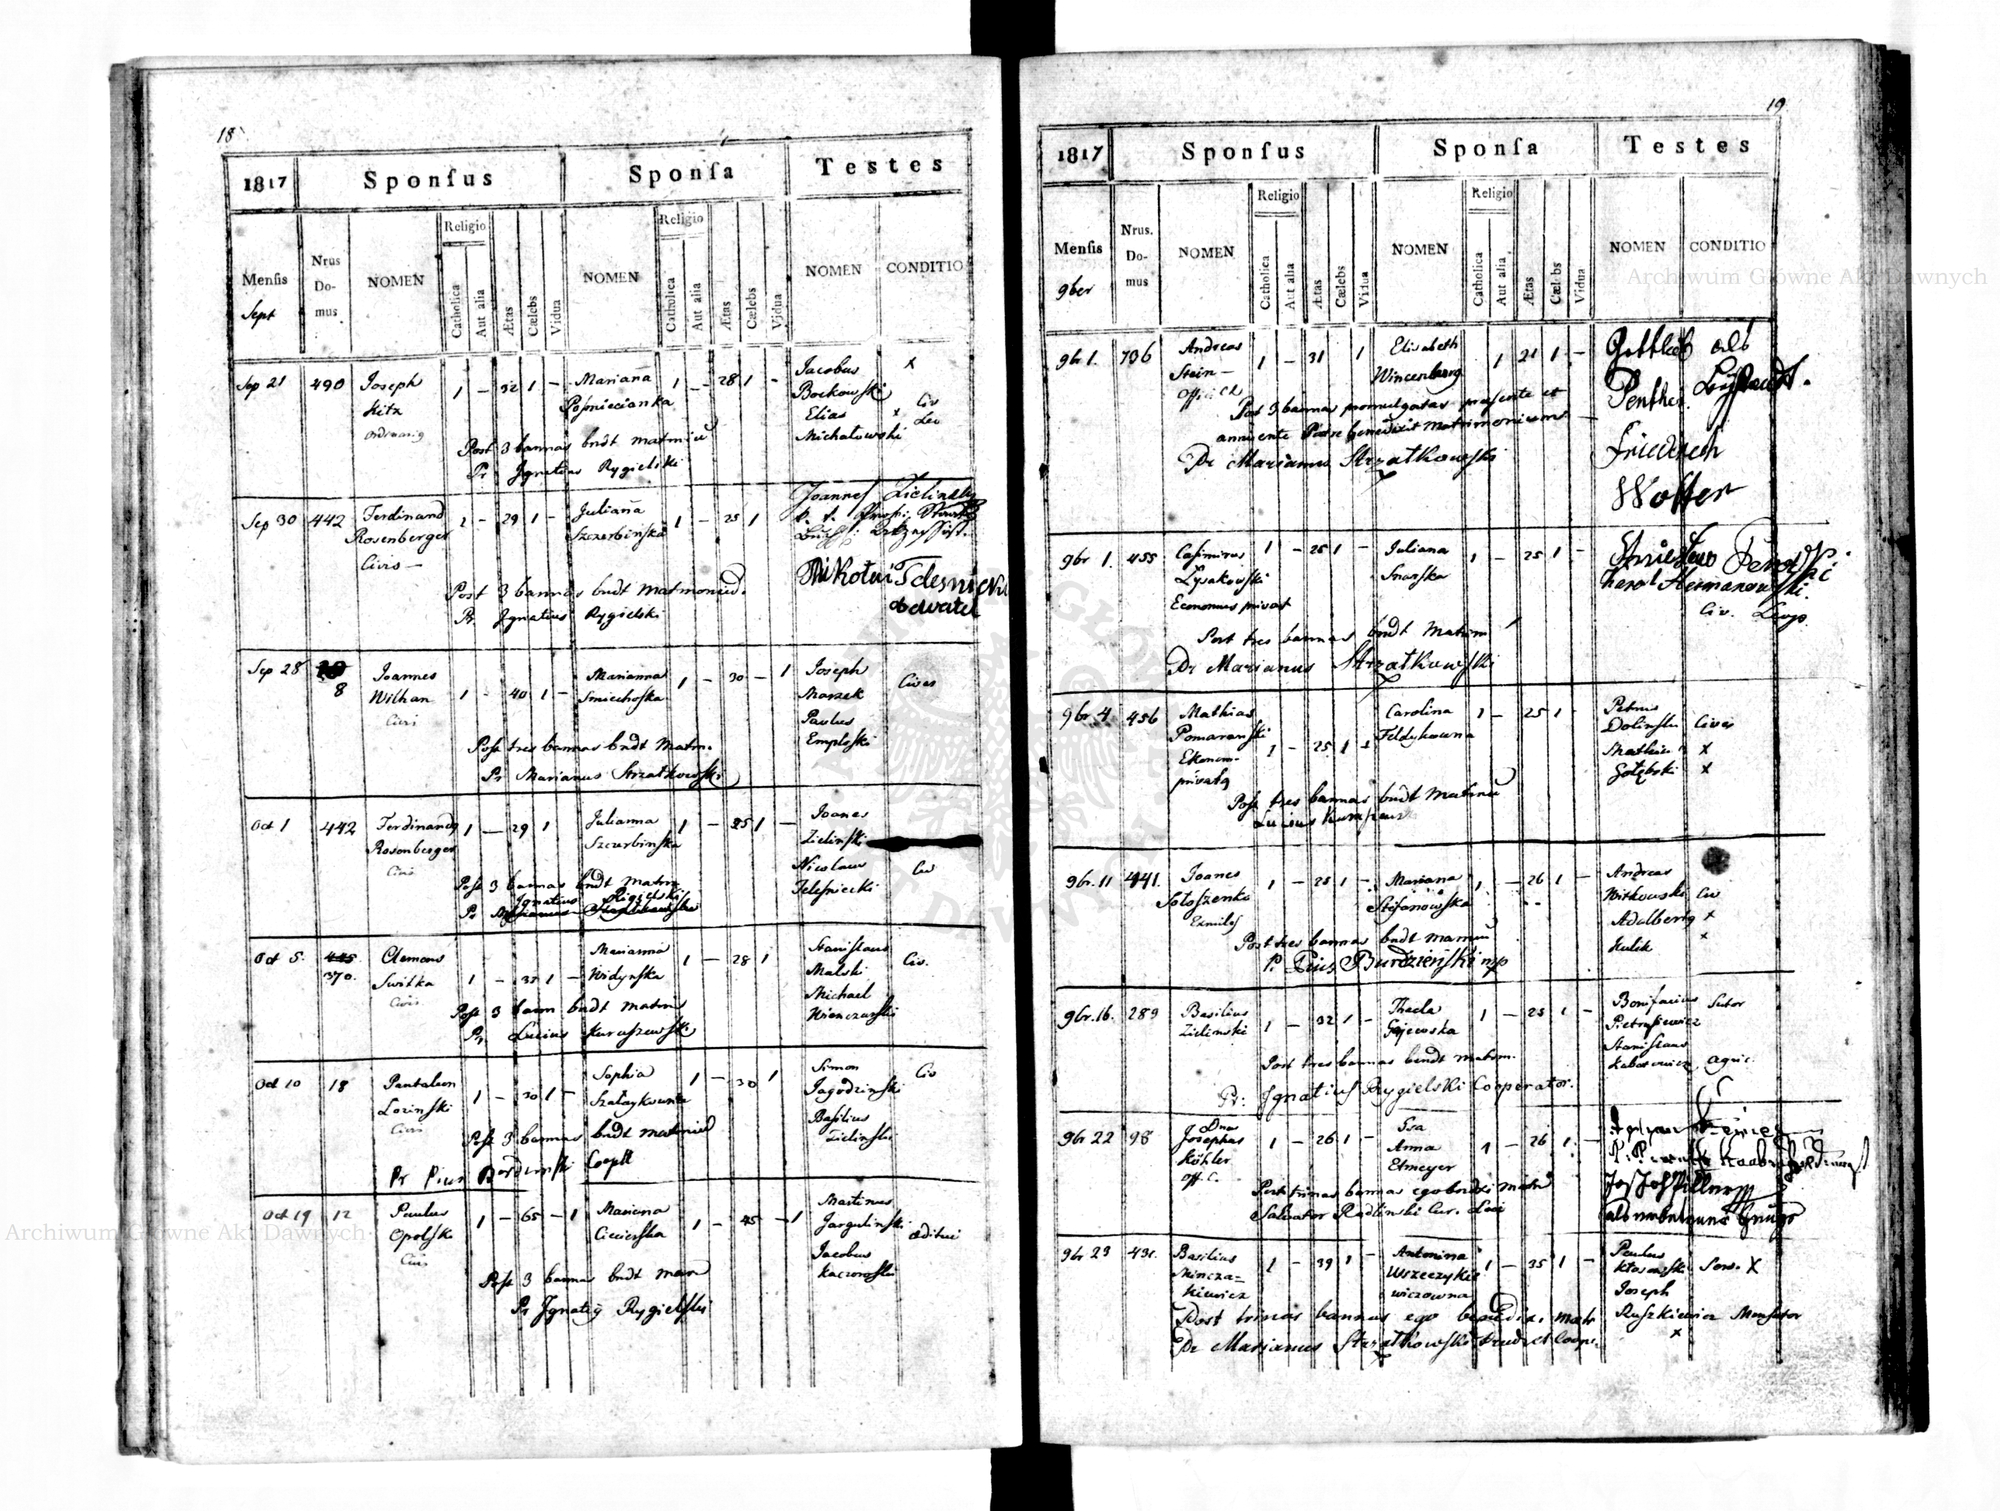 18
1817 Sponſus Sponſa Testes
Menſis Nrus Do- mus NOMEN Religio Catholica Aut alia Ætas Cælebs Vidua NOMEN Religio Catholica Aut alia Ætas Cælebs Vidua NOMEN CONDITIO
Sept
Sep 21 490 Joseph 1 – 32 1 – Mariana 1 – 28 1 – Jacobus x
Kitz Bockowski
Elias x Civ
Michałowski Leo
Post 3 bannas bndt matmiu
Pr Jgnatius Rygielski
Sep 30 442 Ferdinand 1 – 29 1 – Juliana 1 – 25 1 Joannes Zielinski
Rosenberger Szczerbińska
Civis –
Mikołai Telesnicki
obdwatel
Post 3 bannas bndt matmoniu
Pr. Jgnatius Rygielski
Sep 28 8 Joannes 1 – 40 1 – Marianna 1 – 30 – 1 Joseph Cives
Wilhan Smiechoſka Marzek
Civis Paulus
Emploſki
Poſt tres bannas bndt Matm.
Pr Marianus Strzałkowſki
Oct 1 442 Ferdinandg 1 – 29 1 Julianna 1 – 25 1 – Joanes
Rosenberger Szczurbinska Zielinſki
Civis Nicolaus Civ
Telesniecki
Poſt 3 bannas bndt matm
Jgnatius Rigielski
Oct 5. 445 Clemens Marianna 1 – 28 1 Staniſlaus Civ.
370. Switka 1 – 35 1 – Widynſka Malski
Civis Michael
Wienczurſki
Poſt 3 bann bndt matm
Pr Lucius Kuruszewski
Oct 10 18 Pantaleon 1 – 30 1 – Sophia 1 – 30 1 Simon Civ
Lozinſki Szałaykowna Jagodzinſki
Civis Basilius
Zielinſki
Poſt 3 bannas bndt matmiu
Pr Pius Burdzinſki Coopt
Oct 19 12 Paulus 1 – 65 – 1 Mariana 1 – 45 – 1 Martinus
Opolſki Cieciorſka Jargulinſki æditui
Civis Jacobus
Kaczorowſki
Poſt 3 bannas bndt mam
Pr Jgnatig Rygielſki
19
1817 Sponſus Sponſa Testes
Menſis Nrus. Do- mus NOMEN Religio Catholica Aut alia Ætas Cælebs Vidua NOMEN Religio Catholica Aut alia Ætas Cælebs Vidua NOMEN CONDITIO
9ber
9br 1. 736 Andreas 1 – 31 1 Elisabeth 1 21 1 – Gottlieb als
Stein – Wincenberg Penther
Post 3 bannas promulgatas præsente et
annuente Patre benedixit matrimonium
Dr Marianus Strzałkowſki
Friedrich
Wolter
9br 1. 455 Caſimirus 1 – 25 1 – Juliana 1 – 25 1 –
Lysakowſki Snarska
Economus privat
Civ. Leop.
Post tres bannas bndt Matrm
Dr Marianus Strzałkowſki
9br 4 456 Mathias Carolina 1 – 25 1 – Petrus
Pomaranſki 1 – 25 1 – Feldykowna Dolinſki Cives
Ekonom- Mathias x
privatg Gołębski x
Poſt tres bannas bndt Matmiu
9br. 11 441. Joanes 1 – 25 1 – Mariana 1 – 26 1 – Andreas
Sołoſzenko Stefanowska Witkowski Civ
Exmiles Adalbertg x
Kulik x
Post tres bannas bndt mamiu
P. Pius Burdzieńſki mp
9br. 16. 289 Basilius 1 – 32 1 – Thecla 1 – 25 1 – Bonifacius Sutor
Zielinski Gajewska Pietraſiewicz
Staniſlaus
Laborewicz agric.
Post tres bannas bendt matrm.
Pr: Jgnatius Rygielski Cooperator.
9br 22 98 Dnus Fsa
Josephus 1 – 26 1 – Anna 1 – 26 1 –
Köhler Etmeyer
Off. C.
Post trinas bannas ego bndxi matr
Salvator Radlinski Cur. Loci
9br 23 431. Basilius 1 – 39 1 – Antonina 1 – 35 1 – Paulus
Mincza= Wszeczykie Kłosowski Serv. X
Kiewicz wiczowna Joseph
Ruszkiewicz Menſator
x
Post trinas bannas ego benedixi matr
Dr Marianus Strzałkowski
Archiwum Główne Akt Dawnych
Archiwum Główne Akt Dawnych